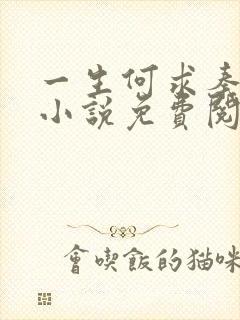 一生何求秦
小說免費閱
會喫飯的猫咪